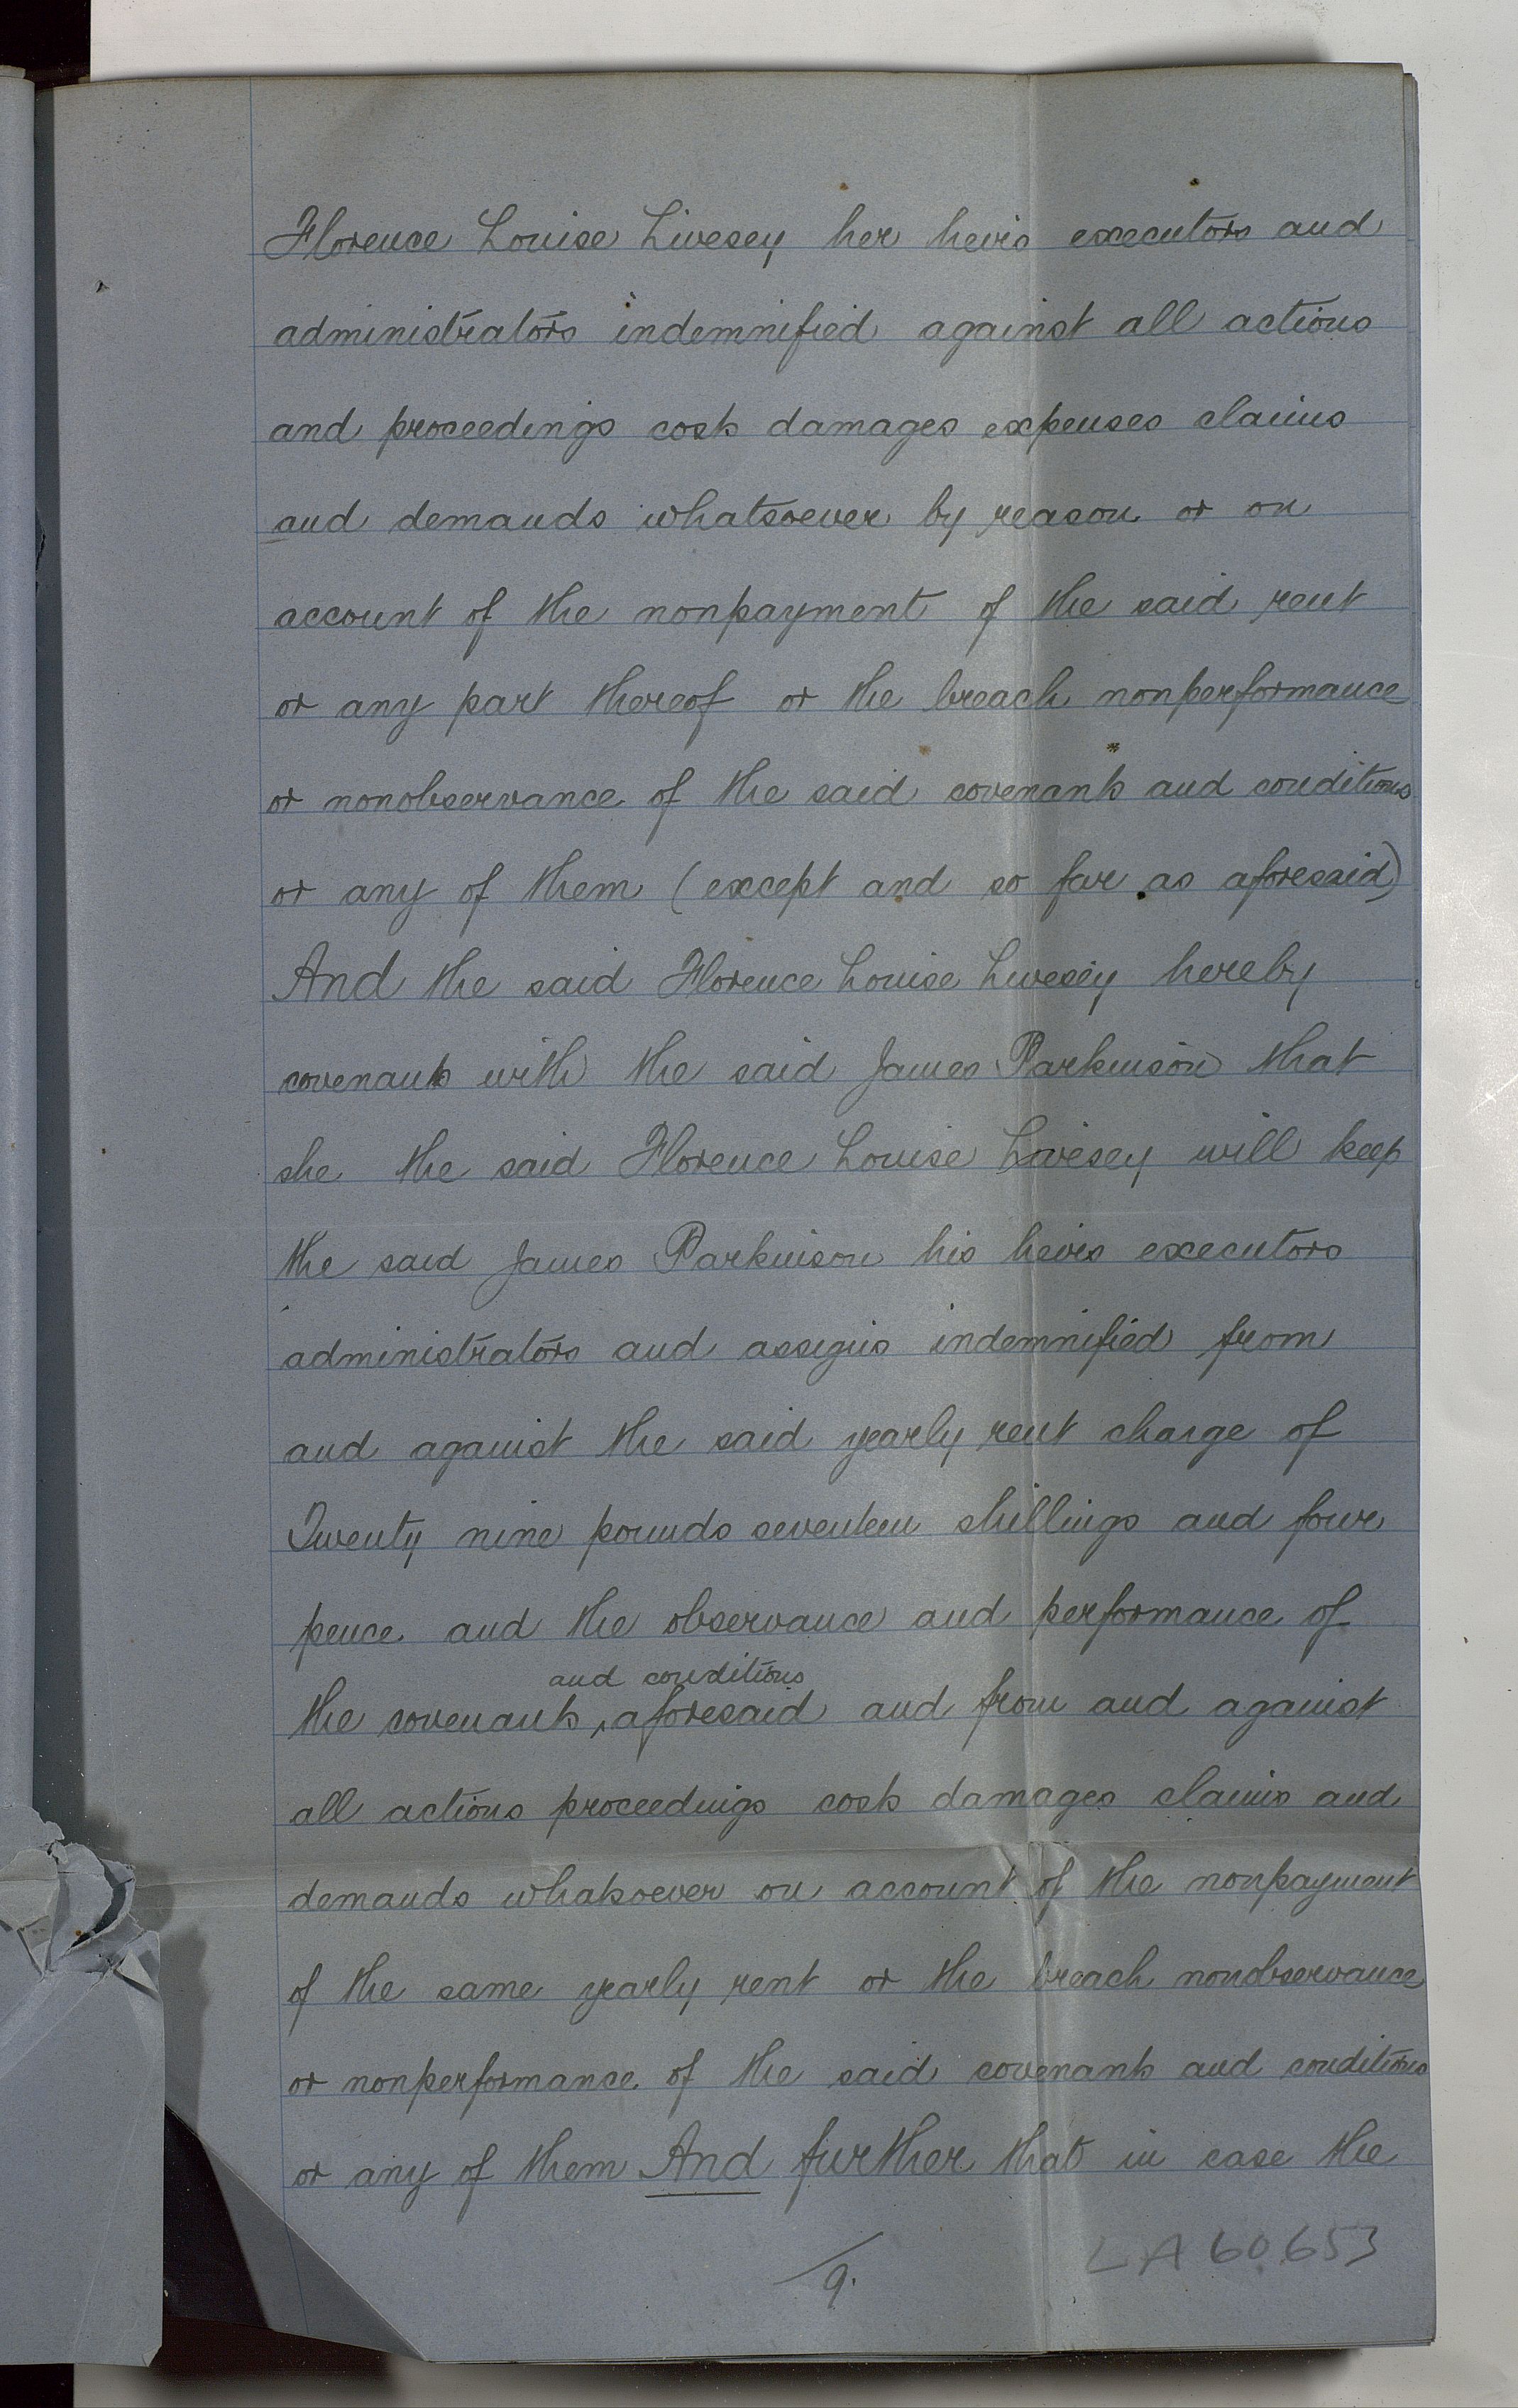 Florence Louise Livesey her heirs executors and
administrators indemnified against all actions
and proceedings costs damages expenses claims
and demands whatsoever by reason or on
account of the nonpayment of the said rent
or any part thereof or the breach nonperformance
or nonobservance of the said covenants and conditions
or any of them (except and so far as aforesaid)
And the said Florence Louise Livesey hereby
covenants with the said James Parkinson that
she the said Florence Louise Livesey will keep
the said James Parkinson his heirs executors
administrators and assigns indemnified from
and against the said yearly rent charge of
Twenty nine pounds seventeen shillings and four
pence and the observance and performance of
and conditions
the covenants ‸ aforesaid and from and against
all actions proceedings costs damages claims and
demands whatsoever on account of the nonpayment
of the same yearly rent or the breach nonobservance
or nonperformance of the said covenants and conditions
or any of them And further that in case the
9.
LA 60653